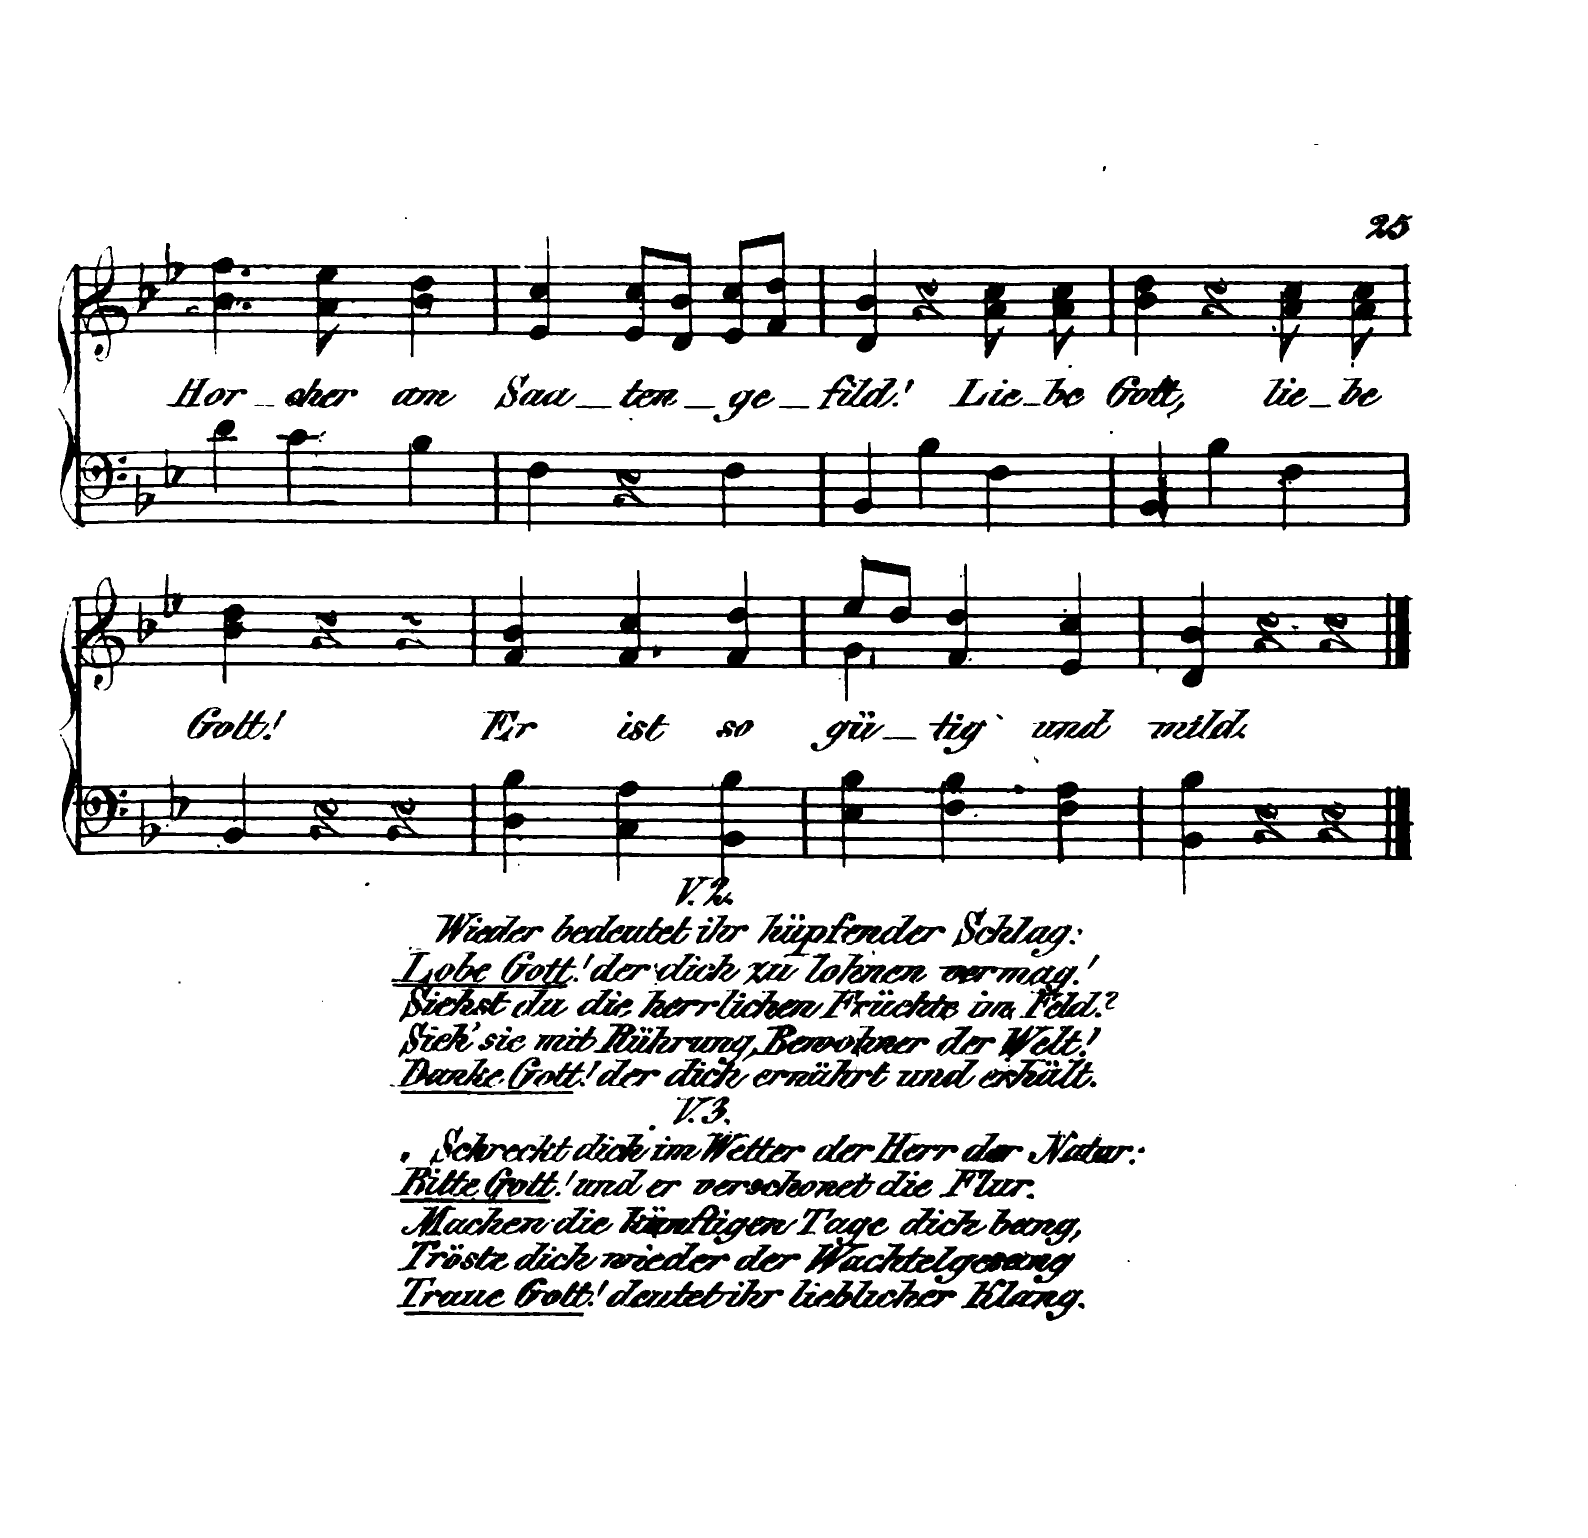 25
Hor_cher am Saa_ten_ge_fild! Lie_be Gott, lie_be
Gott! Er ist so gü_tig und mild.
V. 2.
Wieder bedeutet ihr hüpfender Schlag:
Lobe Gott! der dich zu lohnen vermag!
Siehst du die herrlichen Früchte im Feld?
Sieh' sie mit Rührung, Bewohner der Welt!
Danke Gott! der dich ernährt und erhält.
V. 3.
Schreckt dich im Wetter der Herr der Natur:
Bitte Gott! und er verschonet die Flur.
Machen die künftigen Tage dich bang,
Tröste dich wieder der Wachtelgesang
Traue Gott! deutet ihr lieblicher Klang.